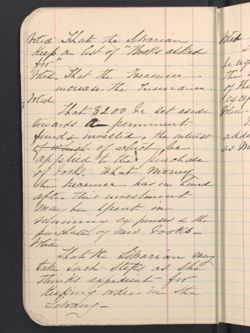 Voted That the Librarian
keep a list of "Books asked
for"
Voted, That the Treasurer
increase the Insurance
Voted
That $200 be set aside
towards a permanent
fund & invested, the interest
of which of which, be
applied to the purchase
of books. What money
the Treasurer has on hand
after this investment
may be spent in
running expenses & the
purchase of new books.
Voted
That the Librarian may
take such steps as she
thinks expedient for
keeping order in the
Library.
Voted